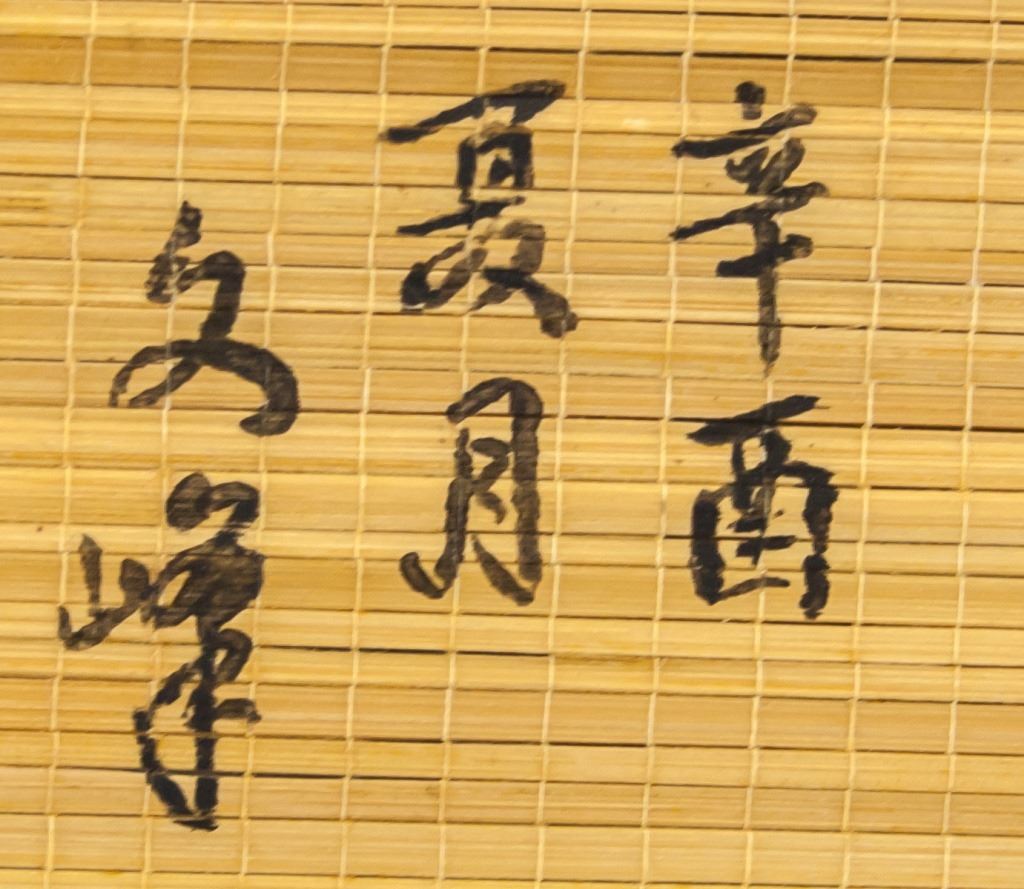 辛酉
夏月
文峰